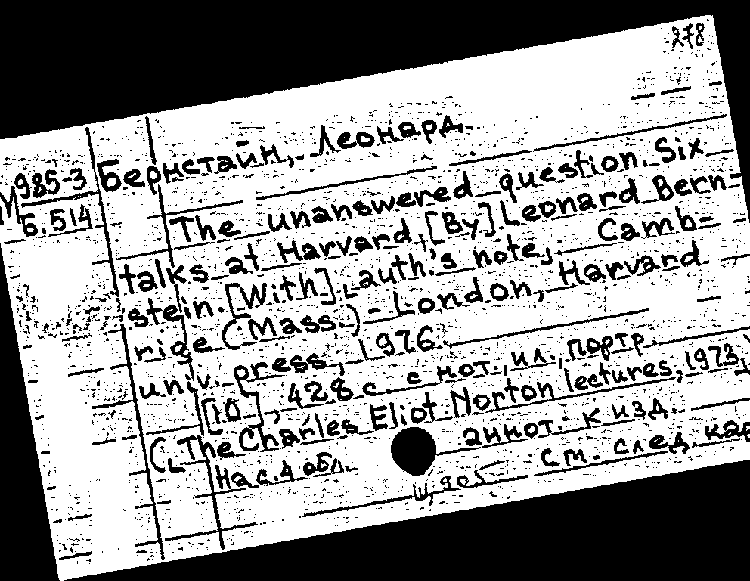 278
М 985-3
Б.514
Бернстайн, Леонард.
The unanswered question. Six
talks at Harvard, [By] Leonard Bern-
stein. [With] auth.'s note. Camb-
rige (Mass.) - London, Harvard
univ. press, 1976.
[10], 428 с. с нот., ил., портр.
(The Charles Eliot Norton lectures, 1973)
На с. 4 обл. аннот. к изд.
см. след. кар